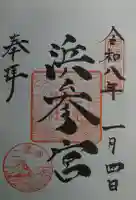 令和八年
一月四日
浜参宮
奉拝